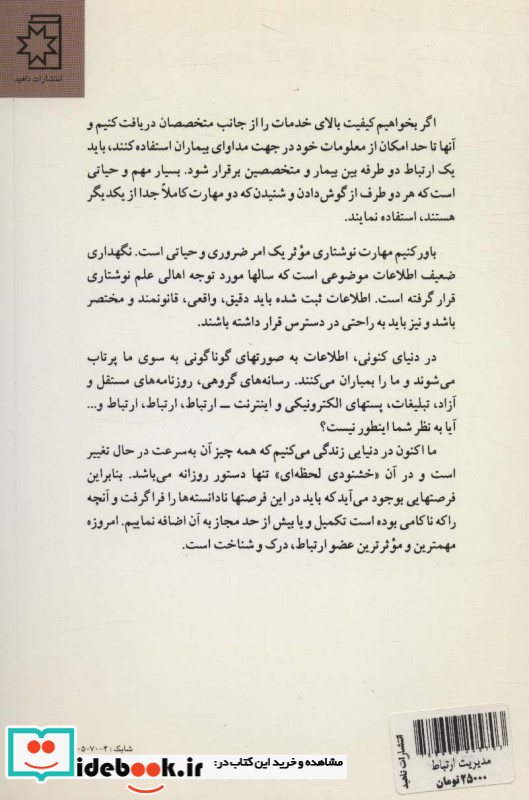 انتشارات ناهید
اگر بخواهیم کیفیت بالای خدمات را از جانب متخصصان دریافت کنیم و
آنها تا حد امکان از معلومات خود در جهت مداوای بیماران استفاده کنند، باید
یک ارتباط دو طرفه بین بیمار و متخصصین برقرار شود. بسیار مهم و حیاتی
است که هر دو طرف از گوش دادن و شنیدن که دو مهارت کاملاً جدا از یکدیگر
هستند، استفاده نمایند.
باور کنیم مهارت نوشتاری مؤثر یک امر ضروری و حیاتی است. نگهداری
ضعیف اطلاعات موضوعی است که سالها مورد توجه اهالی علم نوشتاری
قرار گرفته است. اطلاعات ثبت شده باید دقیق، واقعی، قانونمند و مختصر
باشد و نیز باید به راحتی در دسترس قرار داشته باشند.
در دنیای کنونی، اطلاعات به صورتهای گوناگونی به سوی ما پرتاب
می‌شوند و ما را بمباران می‌کنند. رسانه‌های گروهی، روزنامه‌های مستقل و
آزاد، تبلیغات، پستهای الکترونیکی و اینترنت ــ ارتباط، ارتباط، ارتباط و...
آیا به نظر شما اینطور نیست؟
ما اکنون در دنیایی زندگی می‌کنیم که همه چیز آن به‌سرعت در حال تغییر
است و در آن «خشنودی لحظه‌ای» تنها دستور روزانه می‌باشد. بنابراین
فرصتهایی بوجود می‌آید که باید در این فرصتها نادانسته‌ها را فرا گرفت و آنچه
را که ناکامی بوده است تکمیل و یا بیش از حد مجاز به آن اضافه نماییم. امروزه
مهمترین و مؤثرترین عضو ارتباط، درک و شناخت است.
شابک: ۴-۷۰-۰۵
انتشارات ناهید
مدیریت ارتباط
۲۵۰۰۰ تومان
مشاهده و خرید این کتاب در:
idebook.ir